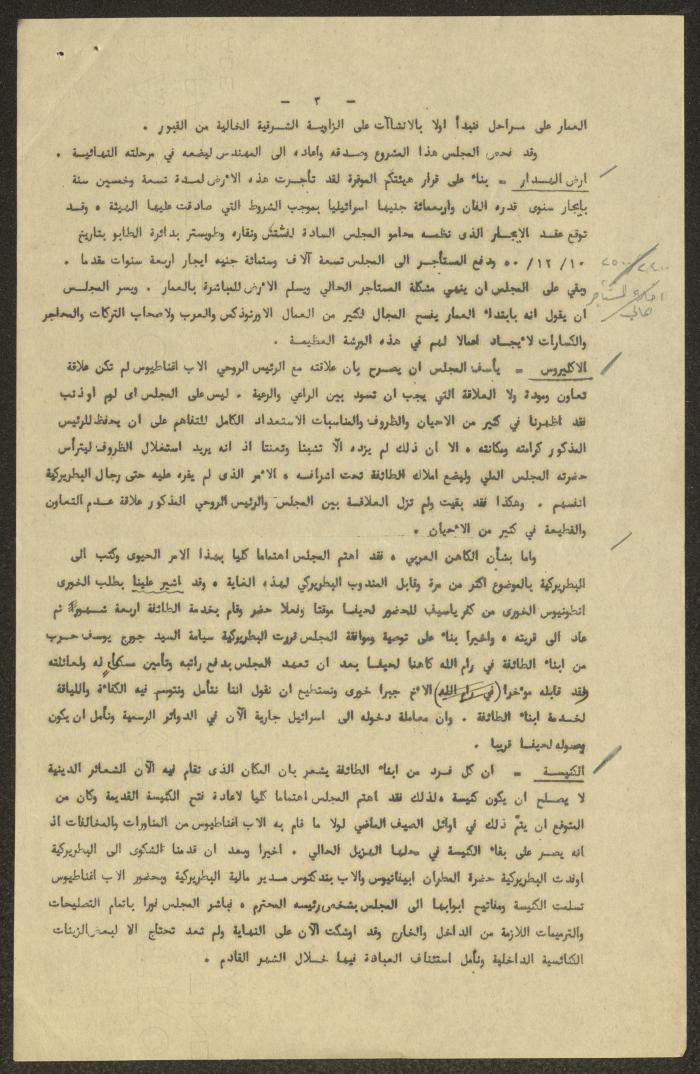 - ٣ -
العمار على مراحل فنبدأ اولا بالانشاآت على الزاوية الشرقية الخالية من القبور .
وقد فحص المجلس هذا المشروع وصدقه واعاده الى المهندس ليضعه في مرحلته النهائية .
ارض الهدار = بناء على قرار هيئتكم الموقرة لقد تأجرت هذه الارض لمدة تسعة وخمسين سنة
بايجار سنوى قدره الفان واربعمائة جنيها اسرائيليا بموجب الشروط التي صادقت عليها الهيئة ، وقد
توقع عقد الايجار الذى نظمه محامو المجلس السادة لفشتش ونقاره وطويستر بدائرة الطابو بتاريخ
١٠ /١٢ /٥٠ ودفع المستأجر الى المجلس تسعة آلاف وستمائة جنيه ايجار اربعة سنوات مقدما .
وبقي على المجلس ان ينهي مشكلة المستاجر الحالي ويسلم الارض للمباشرة بالعمار . ويسر المجلس
ان يقول انه بابتداء العمار يفسح المجال لكثير من العمال الاورثوذكس والعرب ولاصحاب التركات والمحاجر
والكسارات لايجاد اعمالا لهم في هذه الورشة العظيمة .
الاكليروس = يأسف المجلس ان يصرح بان علاقته مع الرئيس الروحي الاب اغناطيوس لم تكن علاقة
تعاون ومودة ولا العلاقة التي يجب ان تسود بين الراعي والرعية . ليس على المجلس اى لوم او ذنب
فقد اظهرنا في كثير من الاحيان والظروف والمناسبات الاستعداد الكامل للتفاهم على ان يحفظ للرئيس
المذكور كرامته ومكانته ، الا ان ذلك لم يزده الّا تشبثا وتعنتا اذ انه يريد استغلال الظروف ليترأس
حضرته المجلس الملي وليضع املاك الطائفة تحت اشرافه ، الامر الذى لم يقره عليه حتى رجال البطريركية
انفسهم . وهكذا فقد بقيت ولم تزل العلاقة بين المجلس والرئيس الروحي المذكور علاقة عدم التعاون
والقطيعة في كثير من الاحيان .
واما بشأن الكاهن العربي ، فقد اهتم المجلس اهتماما كليا بهذا الامر الحيوى وكتب الى
البطريركية بالموضوع اكثر من مرة وقابل المندوب البطريركي لهذه الغاية ، وقد اشير علينا بطلب الخورى
انطونيوس الخورى من كفر ياسيف للحضور لحيفا موقتا وفعلا حضر وقام بخدمة الطائفة اربعة شهور ثم
عاد الى قريته ، واخيرا بناء على توصية وموافقة المجلس قررت البطريركية سيامة السيد جورج يوسف حرب
من ابناء الطائفة في رام الله كاهنا لحيفا بعد ان تعهد المجلس بدفع راتبه وتأمين سكوني له ولعائلته
وقد قابله موخرا (في رام الله) الاخ جبرا خورى ونستطيع ان نقول اننا نتأمل ونتوسم فيه الكفاءة واللياقة
لخدمة ابناء الطائفة . وان معاملة دخوله الى اسرائيل جارية الآن في الدوائر الرسمية ونأمل ان يكون
وصوله لحيفا قريبا .
الكنيسة = ان كل فرد من ابناء الطائفة يشعر بان المكان الذى تقام فيه الآن الشعائر الدينية
لا يصلح ان يكون كنيسة ، لذلك فقد اهتم المجلس اهتماما كليا لاعادة فتح الكنيسة القديمة وكان من
المتوقع ان يتم ذلك في اوائل الصيف الماضي لولا ما قام به الاب اغناطيوس من المناورات والمخالفات اذ
انه يصر على بقاء الكنيسة في محلها الهزيل الحالي . اخيرا وبعد ان قدمنا الشكوى الى البطريركية
اوفدت البطريركية حضرة المطران ابيفانيوس والاب بندكتوس مدير مالية البطريركية وبحضور الاب اغناطيوس
تسلمت الكنيسة ومفاتيح ابوابها الى المجلس بشخص رئيسه المحترم ، فباشر المجلس فورا باتمام التصليحات
والترميمات اللازمة من الداخل والخارج وقد اوشكت الآن على النهاية ولم تعد تحتاج الا لبعض الزينات
الكنائسية الداخلية ونأمل استئناف العبادة فيها خلال الشهر القادم .